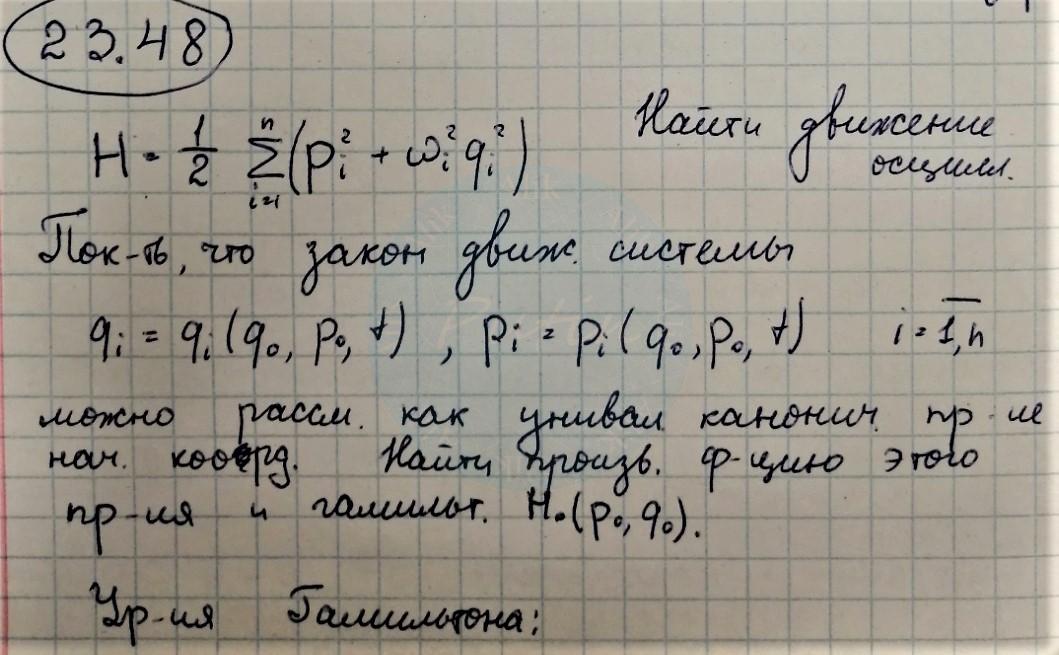 23.48
H = 1/2 Σ_{i=1}^{n} (p_i² + ω_i² q_i²) Найти движение
осцилл.
Пок-ть, что закон движ. системы
q_i = q_i (q_0, p_0, t), p_i = p_i (q_0, p_0, t) i = 1,n
можно рассм. как унивал. канонич. пр-ие
нач. коорд. Найти произв. ф-цию этого
пр-ия и гамильт. H_0 (p_0, q_0).
Ур-ия Гамильтона: